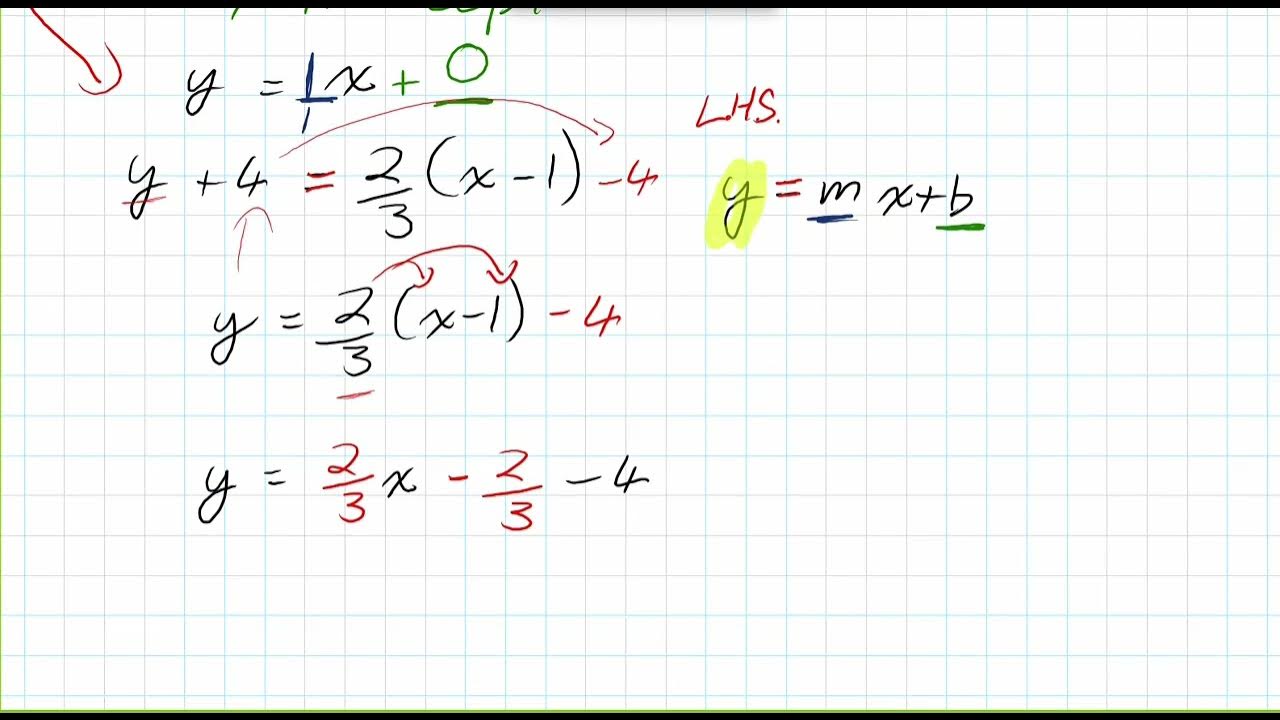 y = 1/1 x + 0
y + 4 = 2/3 (x - 1) - 4
L.H.S.
y = mx + b
y = 2/3 (x - 1) - 4
y = 2/3 x - 2/3 - 4